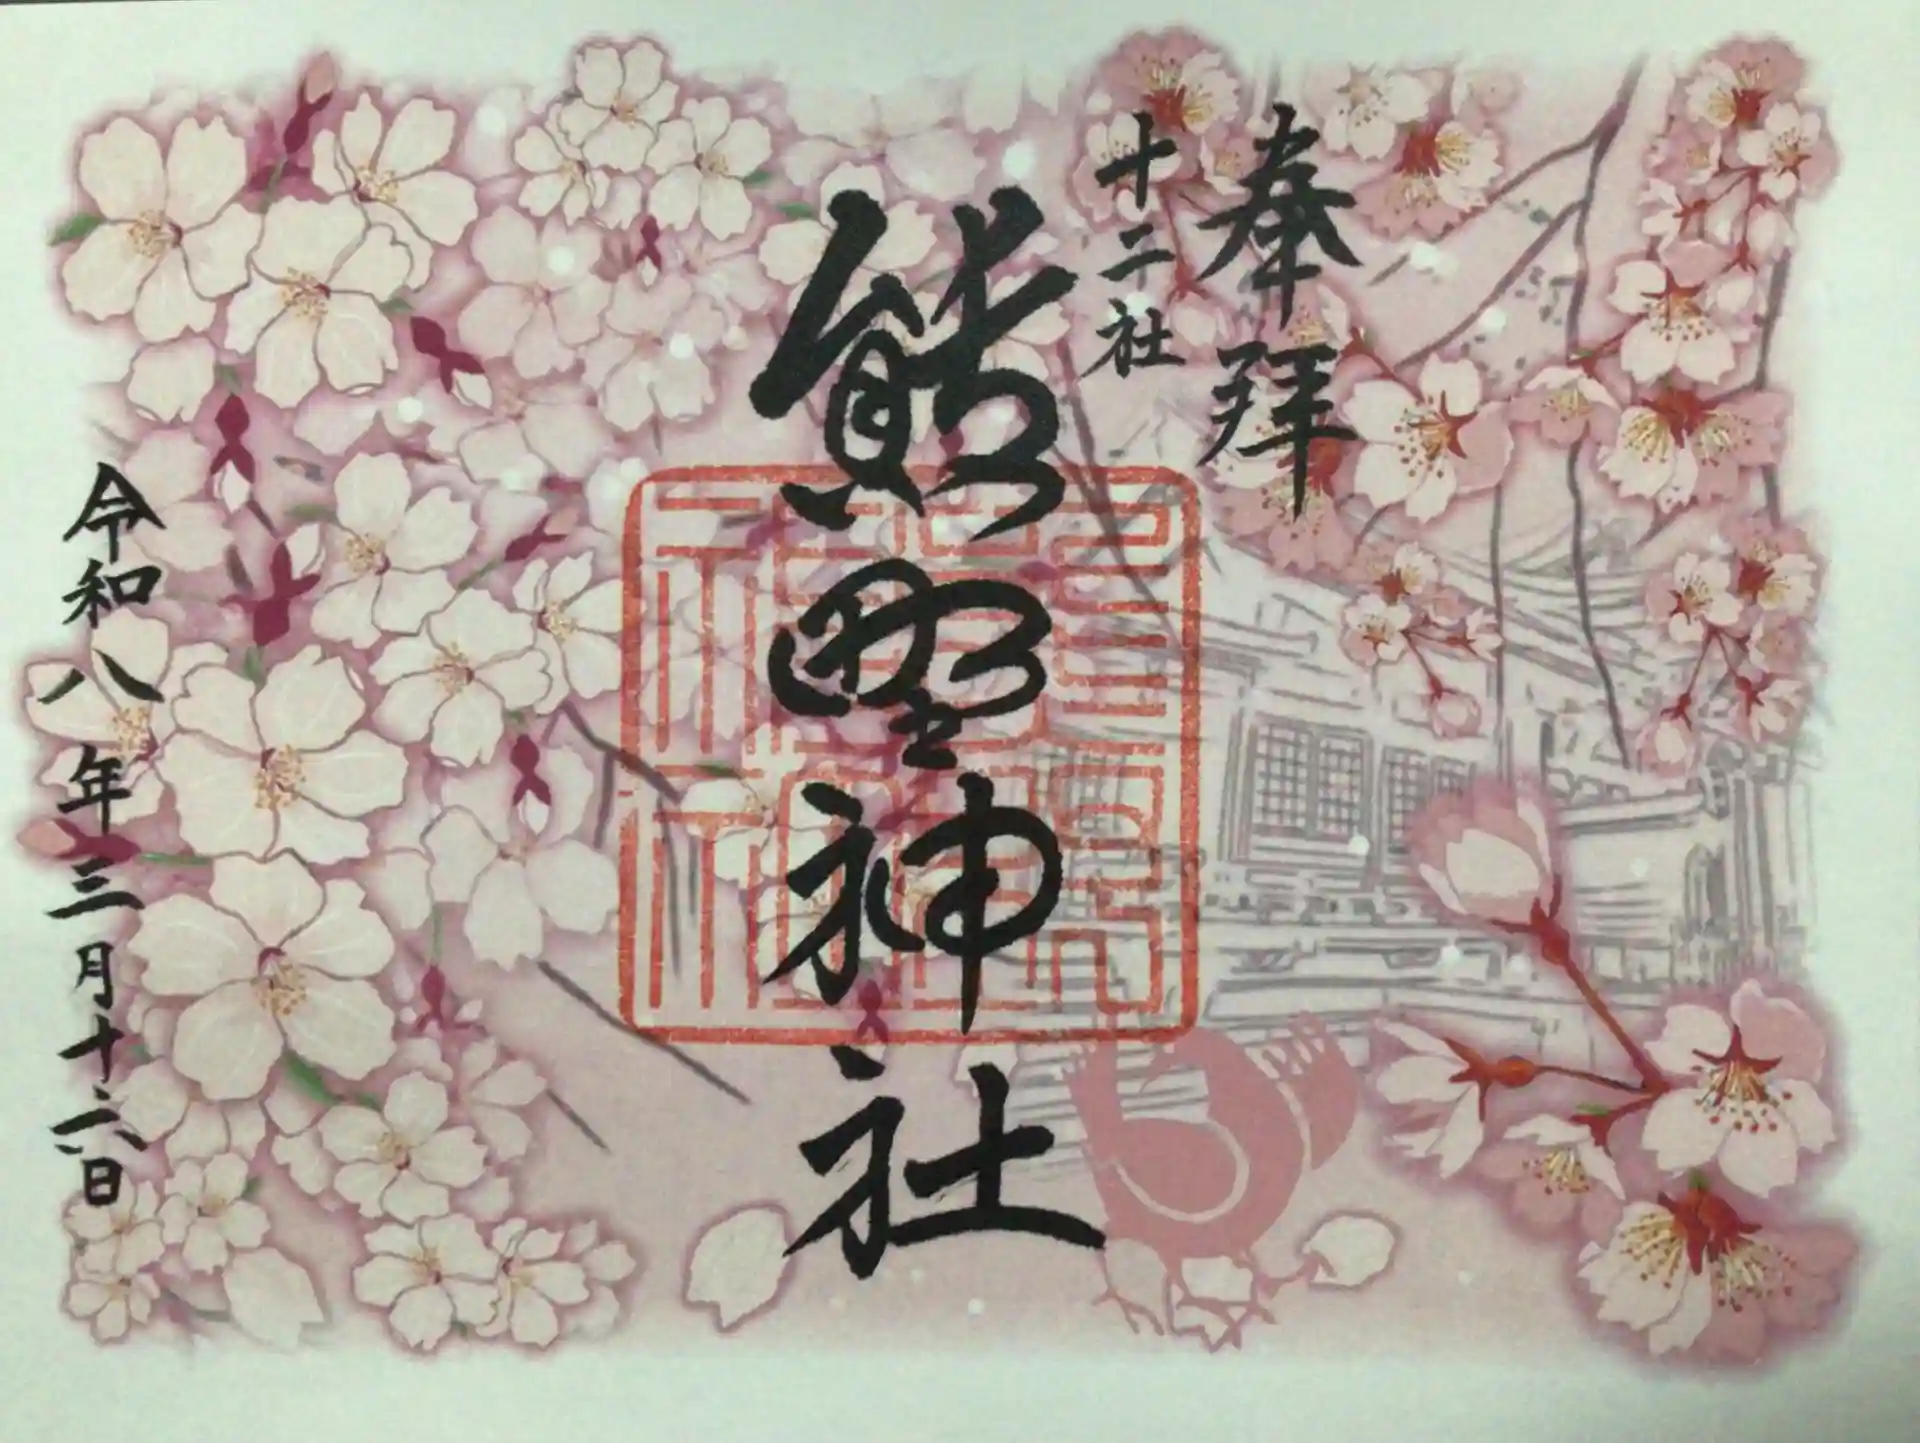 奉拝
十二社
熊野神社
令和八年三月十六日